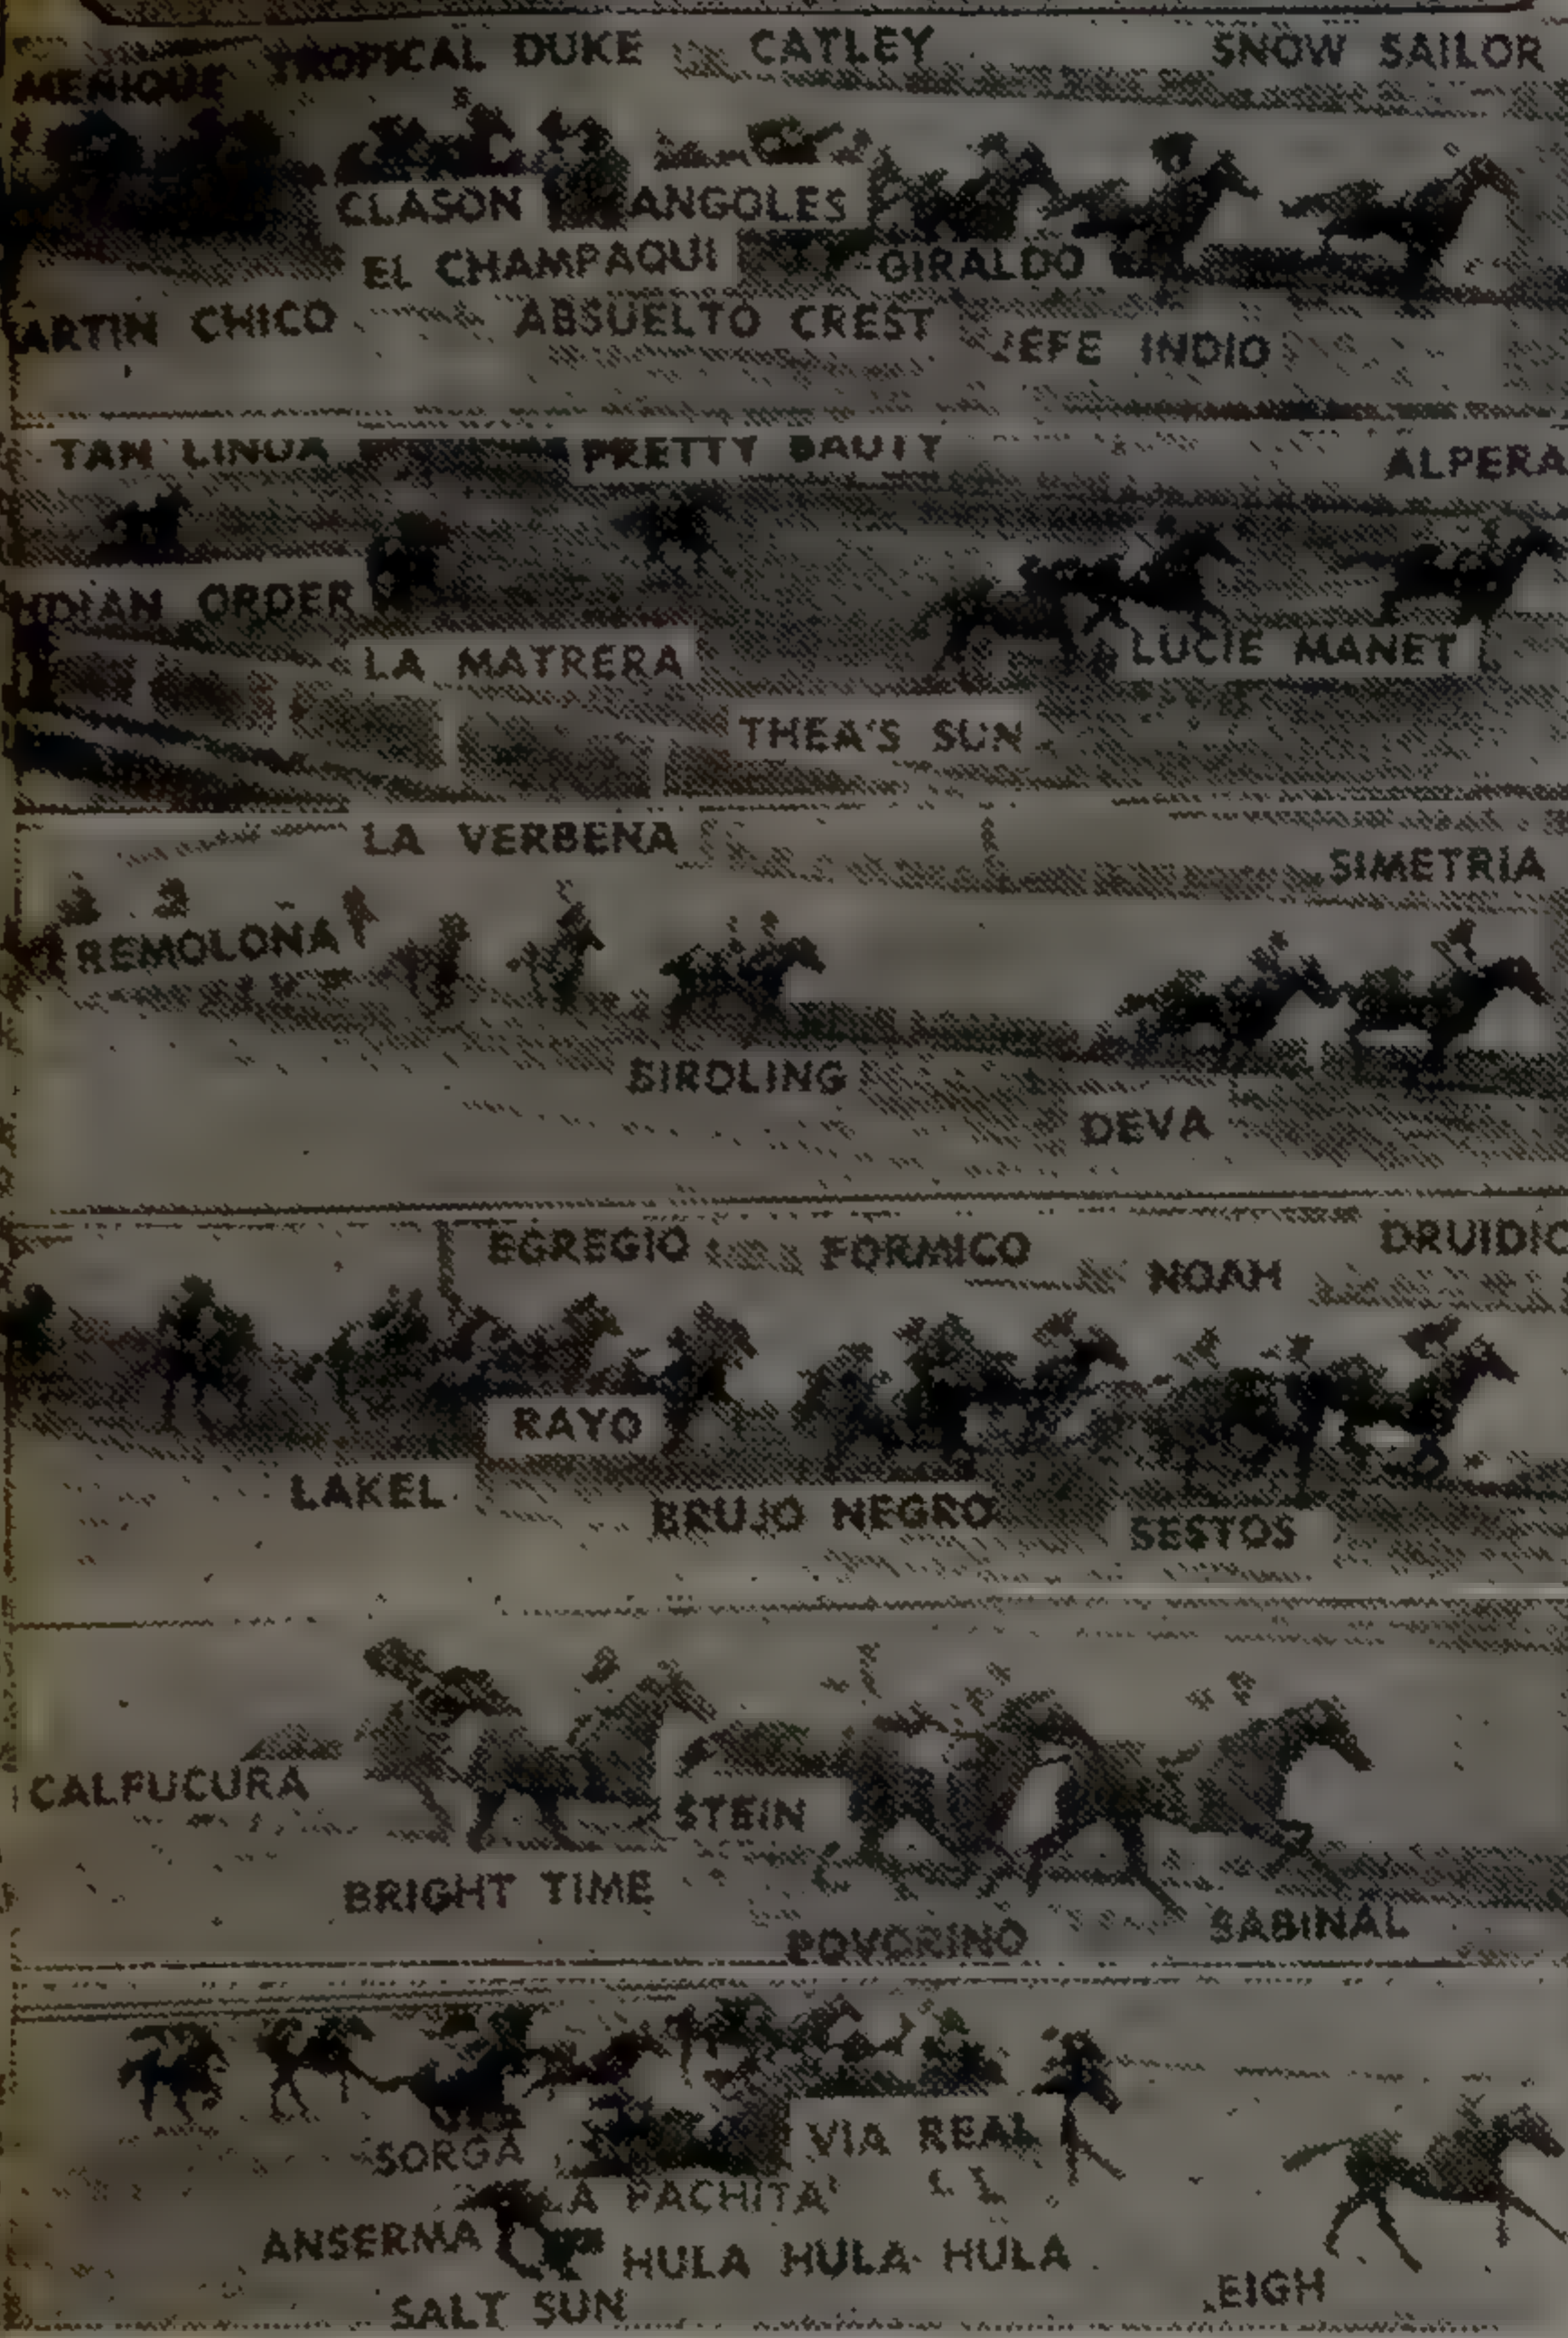 MENIQUE TROPICAL DUKE CATLEY SNOW SAILOR
CLASON ANGOLES
EL CHAMPAQUI GIRALDO
ARTIN CHICO ABSUELTO CREST JEFE INDIO
TAN LINDA PRETTY ALPERA
NDIAN ORDER
LA MATRERA LUCIE MANET
THEA'S SUN
LA VERBENA SIMETRIA
REMOLOÑA
BIRDLING
DEVA
EGREGIO FORMICO NOAH DRUIDIC
RAYO
LAKEL BRUJO NEGRO SESTOS
CALFUCURA STEIN
BRIGHT TIME SABINAL
POVORINO
SORGA VIA REAL
LA PACHITA
ANSERMA HULA HULA HULA
EIGH
SALT SUN